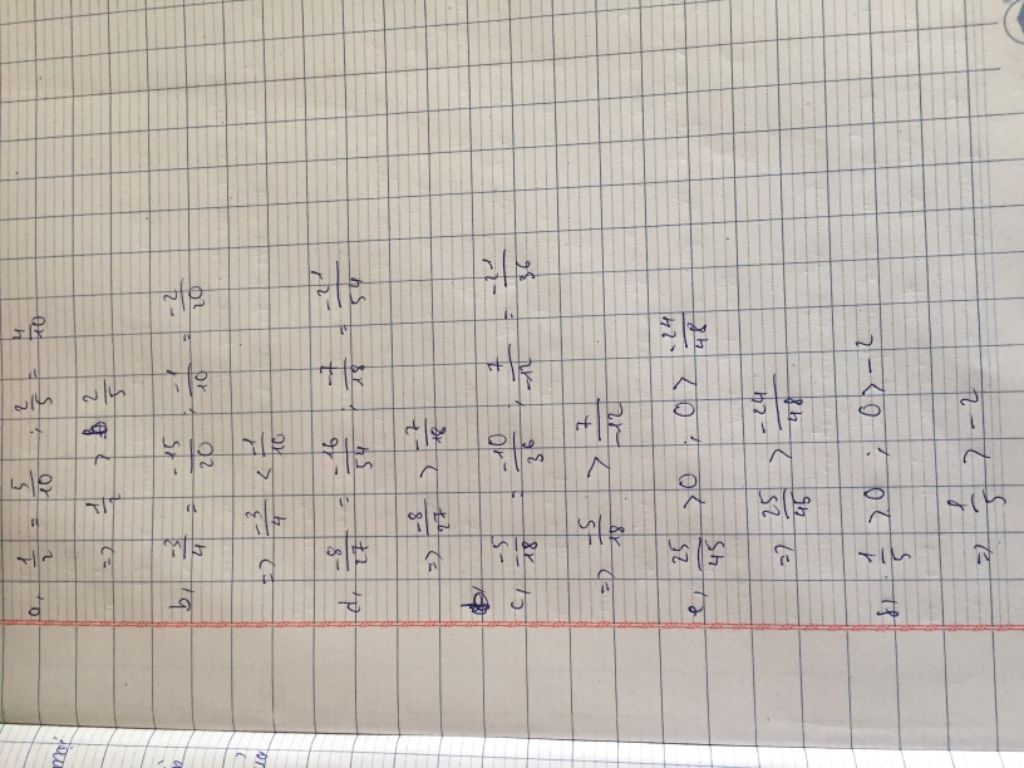 a, 1/2 = 5/10 ; 2/5 = 4/10
=> 1/2 > 2/5
b, -3/4 = -15/20 ; -1/10 = -2/20
=> -3/4 < -1/10
d, -8/27 = -16/54 ; -7/18 = -21/54
=> -8/27 > -7/18
c, -5/18 = -10/36 ; 7/-12 = -21/36
=> -5/18 > 7/-12
e, 25/45 > 0 ; 0 > -24/48
=> 25/45 > -24/48
f, 1/5 > 0 ; 0 > -2
=> 1/5 > -2